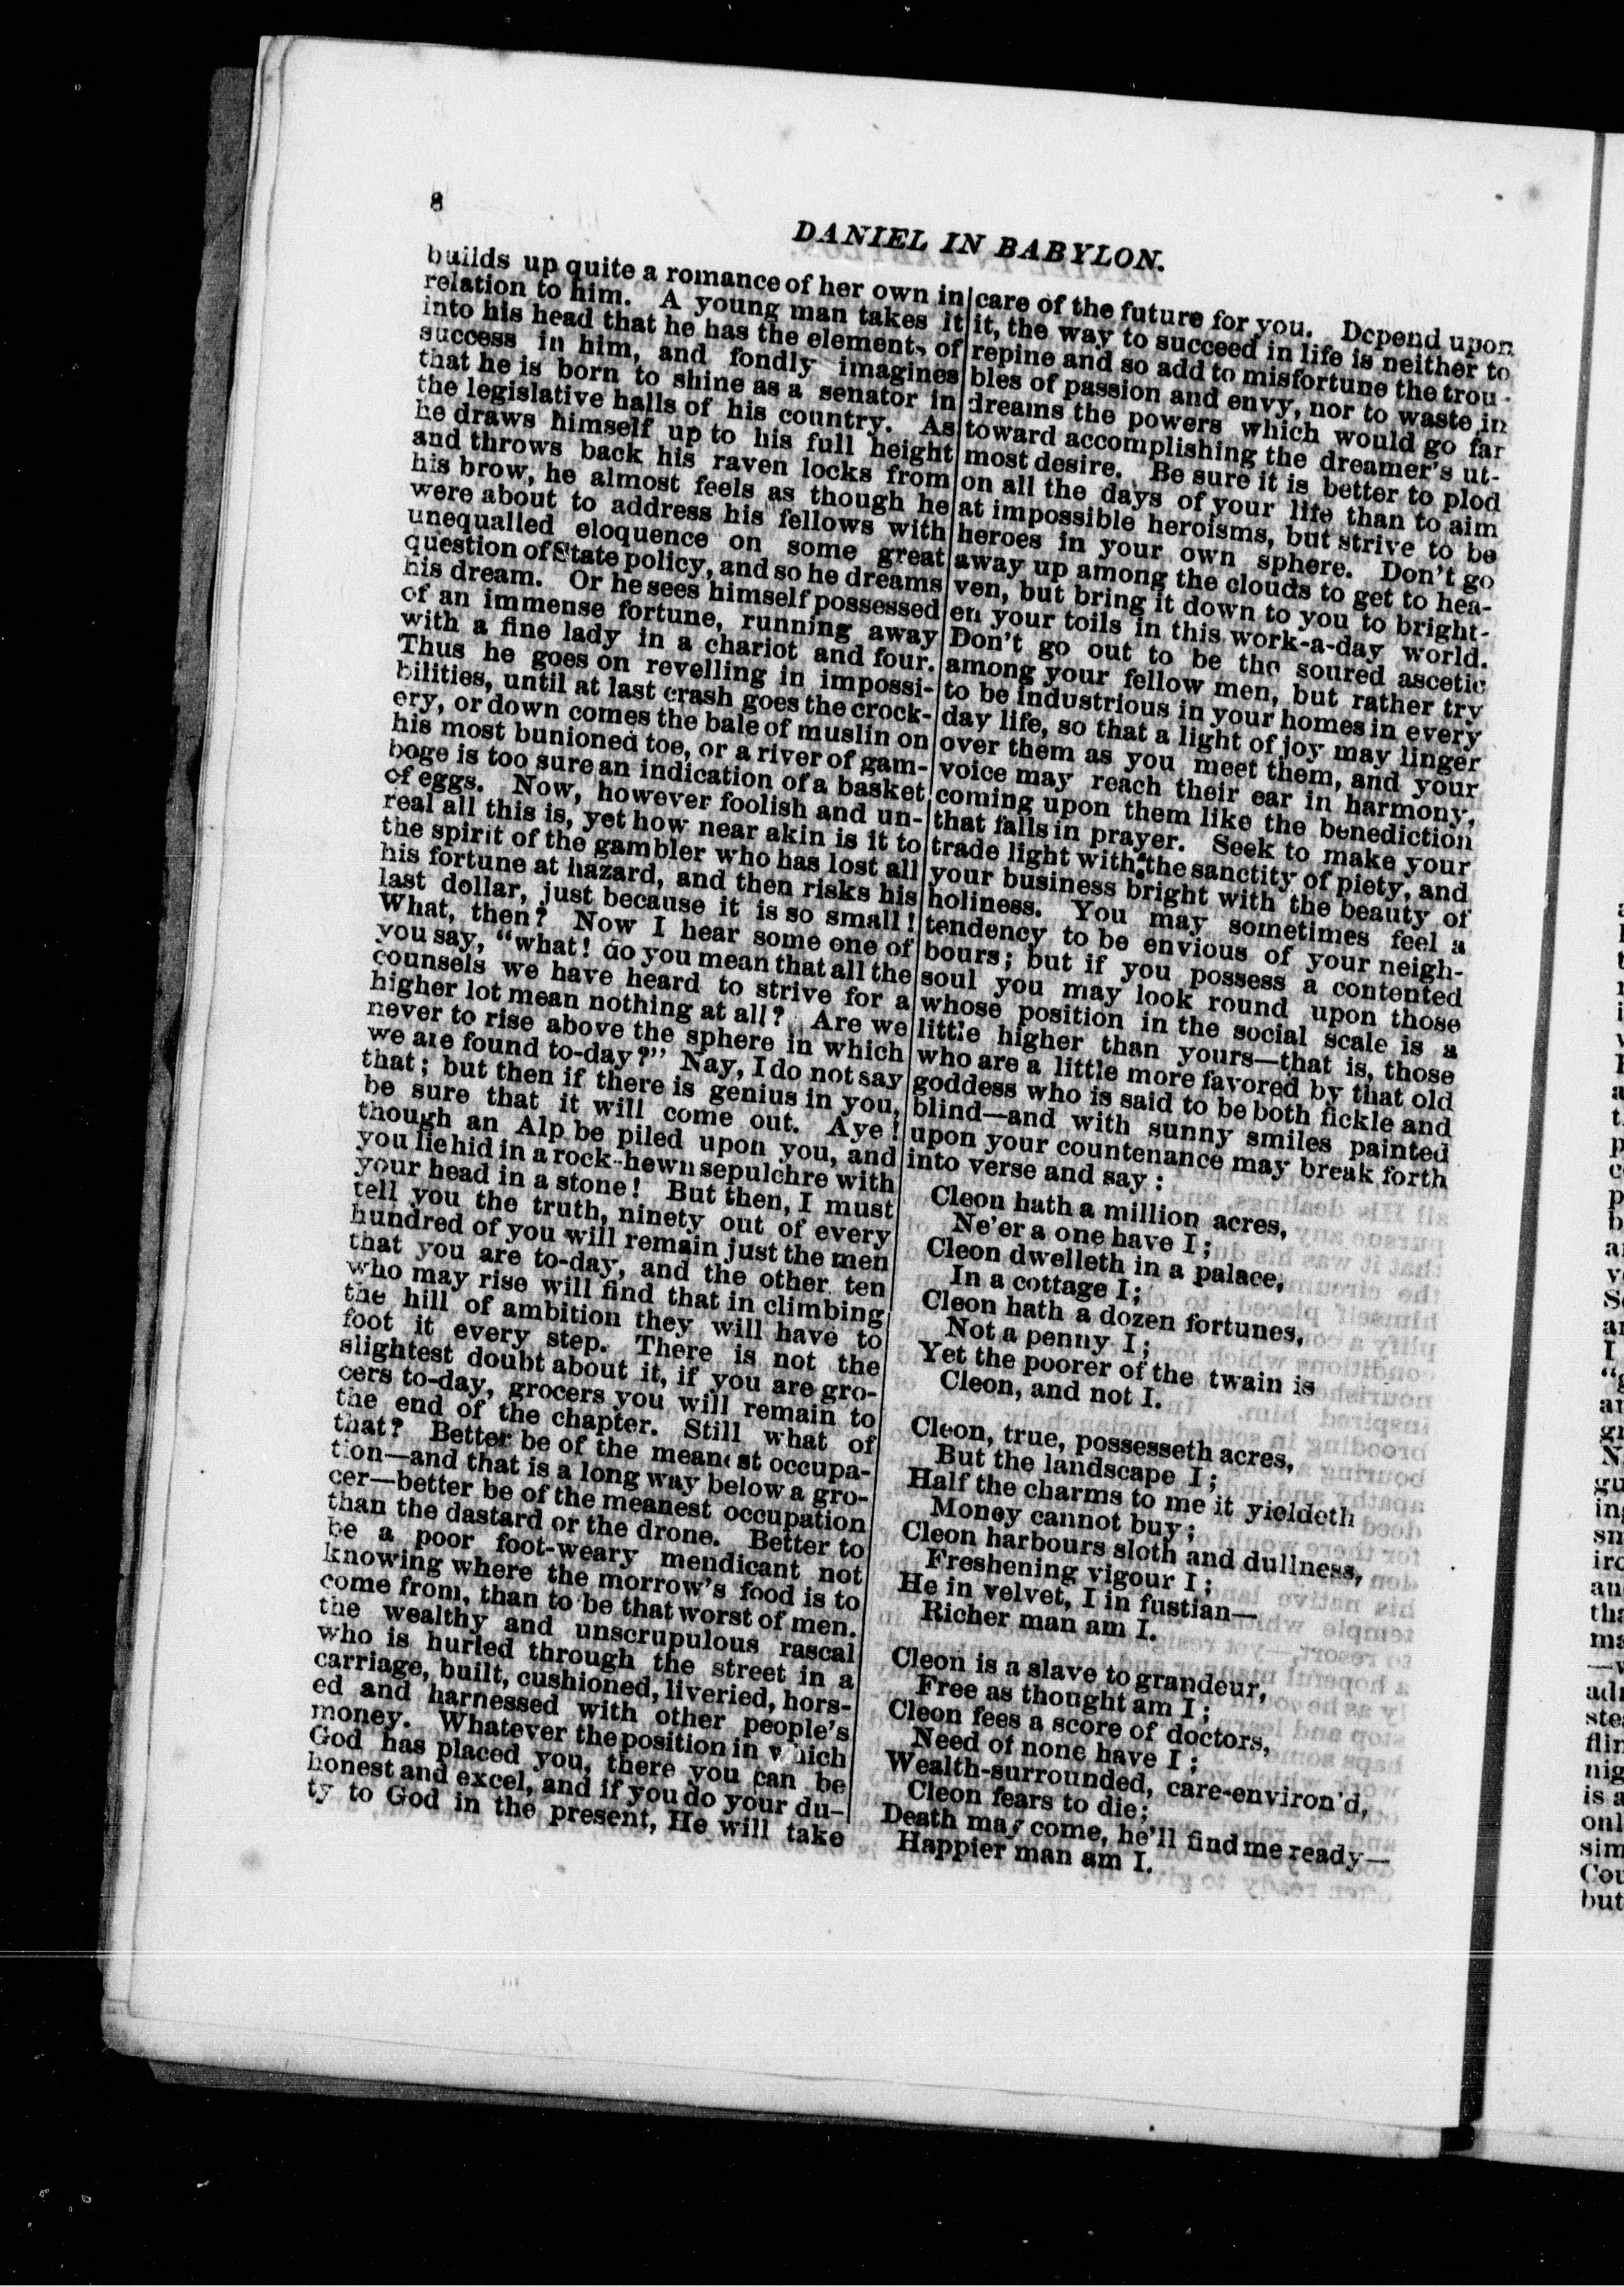 8
DANIEL IN BABYLON.
builds up quite a romance of her own in
relation to him. A young man takes it
into his head that he has the elements of
success in him, and fondly imagines
that he is born to shine as a senator in
the legislative halls of his country. As
he draws himself up to his full height
and throws back his raven locks from
his brow, he almost feels as though he
were about to address his fellows with
unequalled eloquence on some great
question of State policy, and so he dreams
his dream. Or he sees himself possessed
of an immense fortune, running away
with a fine lady in a chariot and four.
Thus he goes on revelling in impossi-
bilities, until at last crash goes the crock-
ery, or down comes the bale of muslin on
his most bunioned toe, or a river of gam-
boge is too sure an indication of a basket
of eggs. Now, however foolish and un-
real all this is, yet how near akin is it to
the spirit of the gambler who has lost all
his fortune at hazard, and then risks his
last dollar, just because it is so small!
What, then? Now I hear some one of
you say, "what! do you mean that all the
counsels we have heard to strive for a
higher lot mean nothing at all? Are we
never to rise above the sphere in which
we are found to-day?" Nay, I do not say
that; but then if there is genius in you,
be sure that it will come out. Aye!
though an Alp be piled upon you, and
you lie hid in a rock-hewn sepulchre with
your head in a stone! But then, I must
tell you the truth, ninety out of every
hundred of you will remain just the men
that you are to-day, and the other ten
who may rise will find that in climbing
the hill of ambition they will have to
foot it every step. There is not the
slightest doubt about it, if you are gro-
cers to-day, grocers you will remain to
the end of the chapter. Still what of
that? Better be of the meanest occupa-
tion—and that is a long way below a gro-
cer—better be of the meanest occupation
than the dastard or the drone. Better to
be a poor foot-weary mendicant not
knowing where the morrow's food is to
come from, than to be that worst of men.
the wealthy and unscrupulous rascal
who is hurled through the street in a
carriage, built, cushioned, liveried, hors-
ed and harnessed with other people's
money. Whatever the position in which
God has placed you, there you can be
honest and excel, and if you do your du-
ty to God in the present, He will take
care of the future for you. Depend upon
it, the way to succeed in life is neither to
repine and so add to misfortune the trou-
bles of passion and envy, nor to waste in
dreams the powers which would go far
toward accomplishing the dreamer's ut-
most desire. Be sure it is better to plod
on all the days of your life than to aim
at impossible heroisms, but strive to be
heroes in your own sphere. Don't go
away up among the clouds to get to hea-
ven, but bring it down to you to bright-
en your toils in this work-a-day world.
Don't go out to be the soured ascetic
among your fellow men, but rather try
to be industrious in your homes in every
day life, so that a light of joy may linger
over them as you meet them, and your
voice may reach their ear in harmony,
coming upon them like the benediction
that falls in prayer. Seek to make your
trade light with the sanctity of piety, and
your business bright with the beauty of
holiness. You may sometimes feel a
tendency to be envious of your neigh-
bours; but if you possess a contented
soul you may look round upon those
whose position in the social scale is a
little higher than yours—that is, those
who are a little more favored by that old
goddess who is said to be both fickle and
blind—and with sunny smiles painted
upon your countenance may break forth
into verse and say:
Cleon hath a million acres,
Ne'er a one have I;
Cleon dwelleth in a palace,
In a cottage I;
Cleon hath a dozen fortunes,
Not a penny I;
Yet the poorer of the twain is
Cleon, and not I.
Cleon, true, possesseth acres,
But the landscape I;
Half the charms to me it yieldeth
Money cannot buy;
Cleon harbours sloth and dullness,
Freshening vigour I;
He in velvet, I in fustian—
Richer man am I.
Cleon is a slave to grandeur,
Free as thought am I;
Cleon fees a score of doctors,
Need of none have I;
Wealth-surrounded, care-environ'd,
Cleon fears to die;
Death may come, he'll find me ready—
Happier man am I.